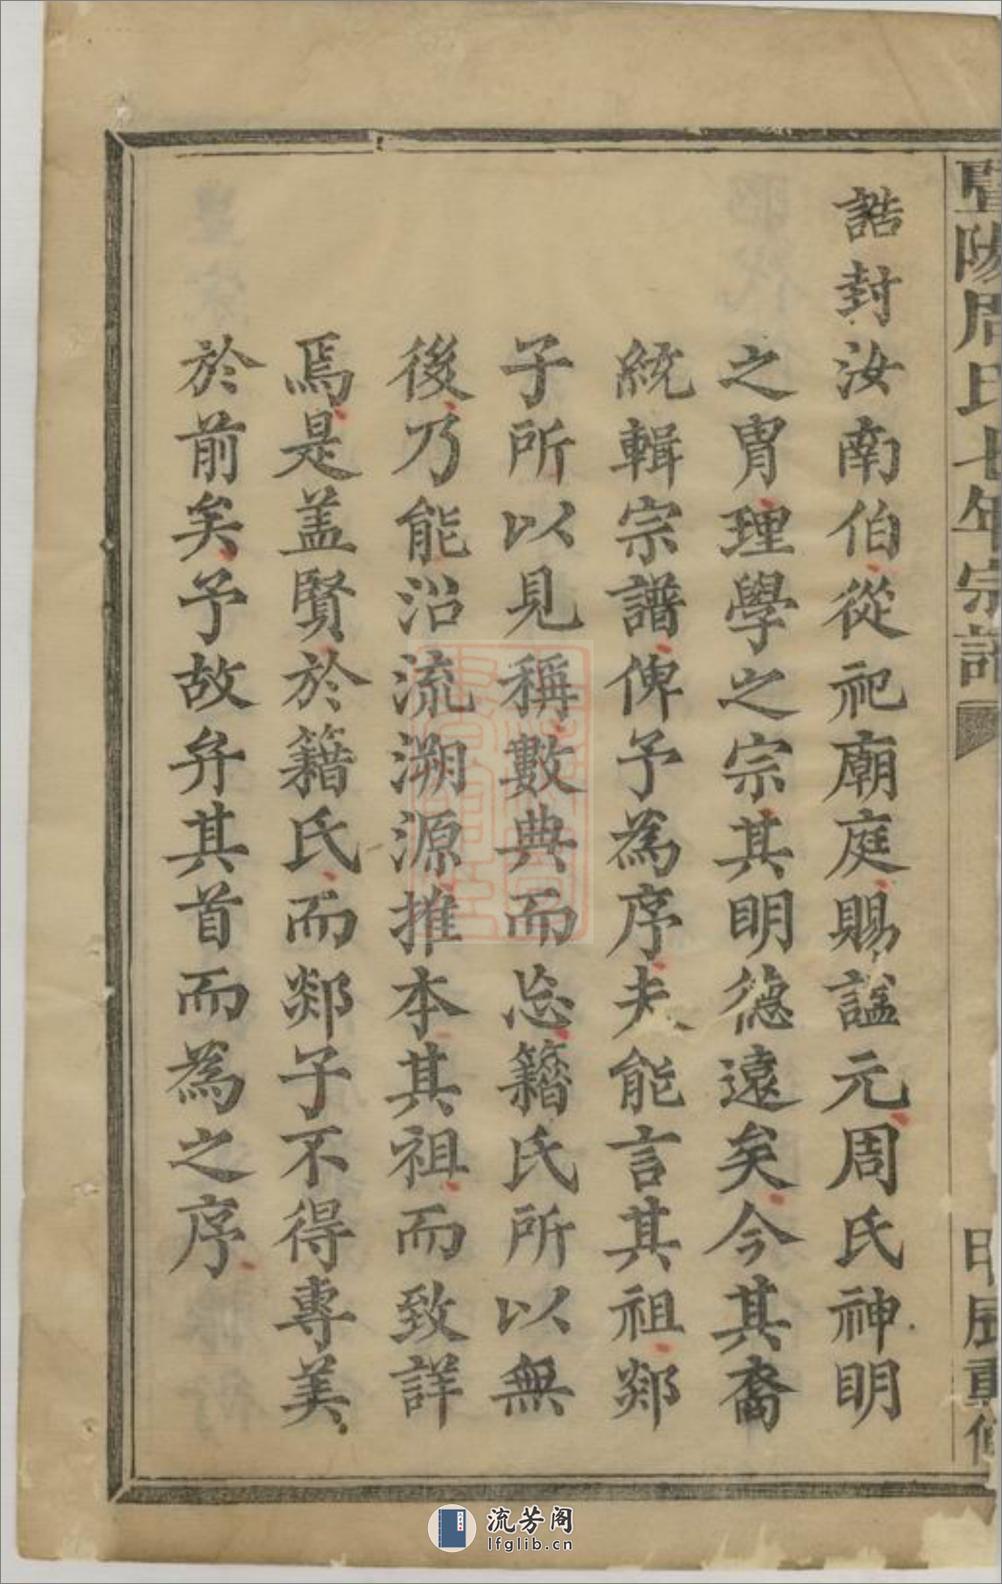 暨陽周氏七年宗譜
誥封汝南伯從祀廟庭賜諡元周氏神明
之胄理學之宗其明德遠矣今其裔
統輯宗譜俾予為序夫能言其祖郯
子所以見稱數典而忘籍氏所以無
後乃能沿流溯源推本其祖而致詳
焉是盖賢於籍氏而郯子不得專美
於前矣予故弁其首而為之序
流芳阁
lfglib.cn